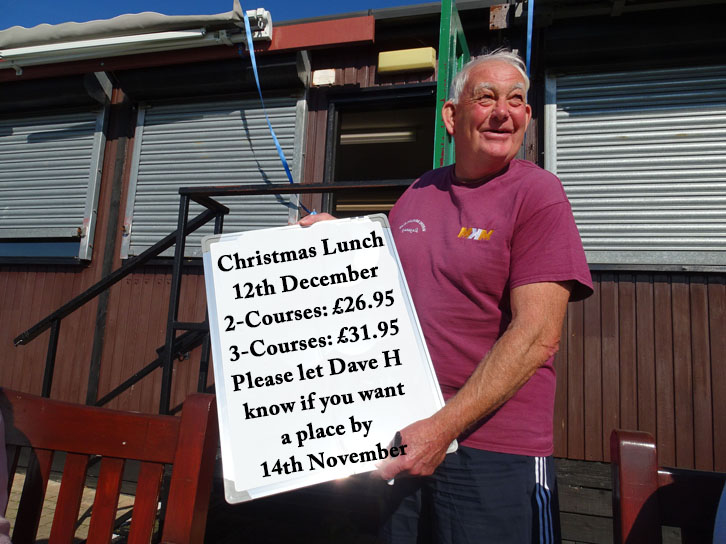 Christmas Lunch
12th December
2-Courses: £26.95
3-Courses: £31.95
Please let Dave H
know if you want
a place by
14th November
MKM